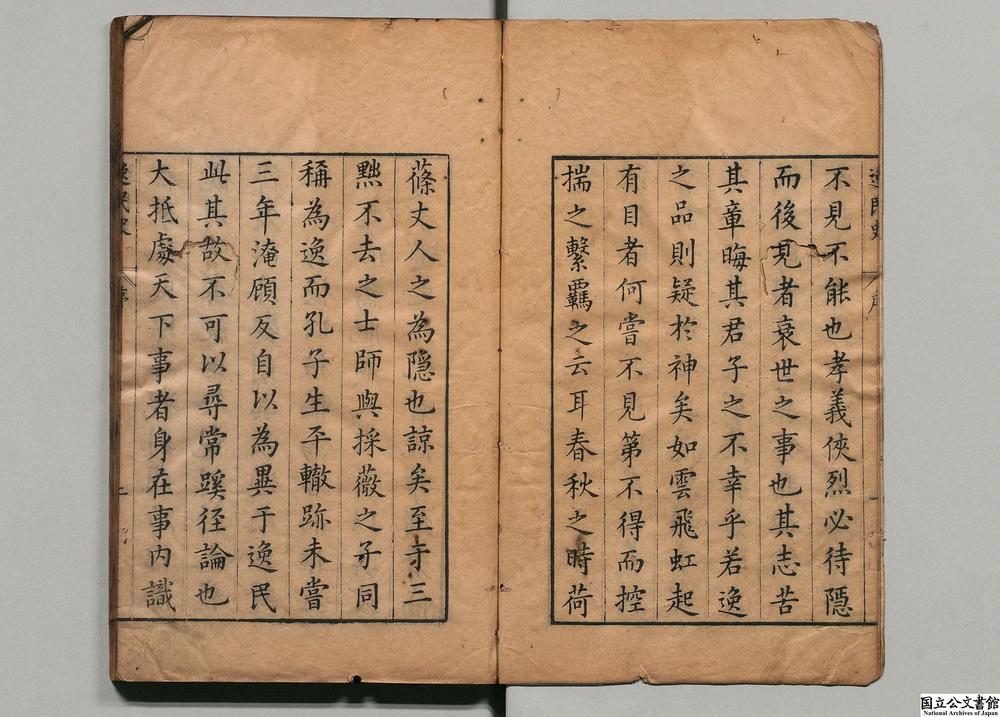 不見不能也孝義俠烈必待隠
而後見者衰世之事也其志苦
其章晦其君子之不幸乎若逸
之品則疑於神矣如雲飛虹起
有目者何嘗不見第不得而控
揣之繫覊之云耳春秋之時荷
蓧丈人之為隠也諒矣至于三
黜不去之士師與採薇之子同
稱為逸而孔子生平轍跡未嘗
三年淹顧反自以為異于逸民
此其故不可以尋常蹊徑論也
大抵處天下事者身在事内識
国立公文書館
National Archives of Japan